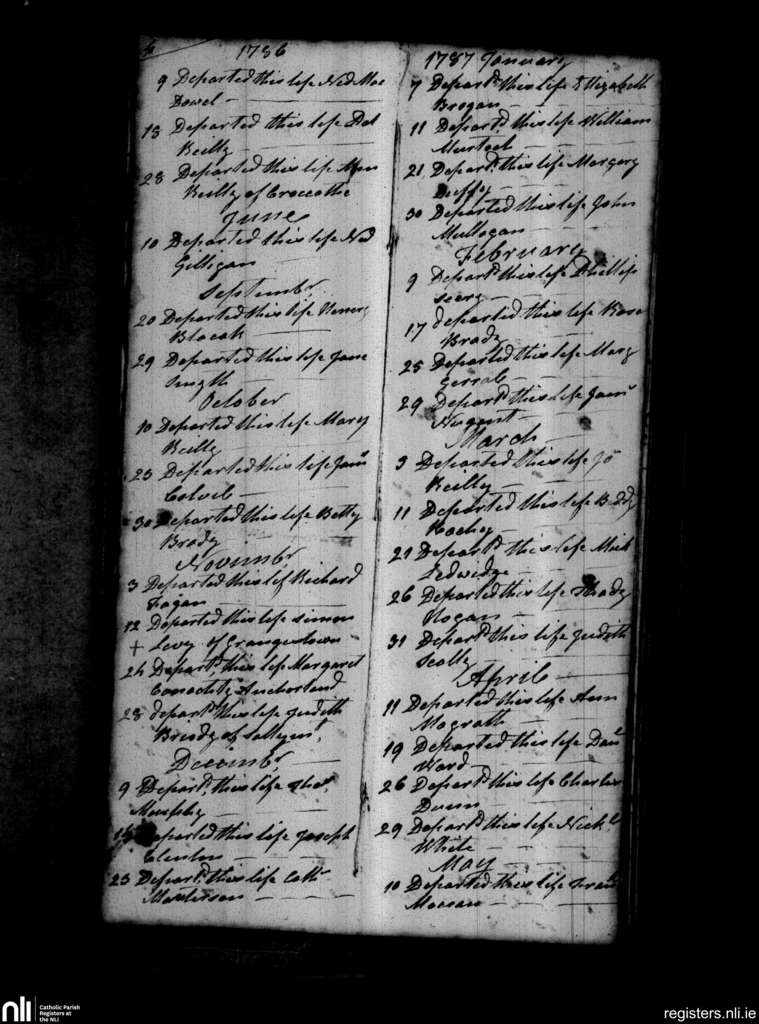 1786
9 Departed this life Ned Mac
Dowel
13 Departed this life
Reilly
28 Departed this life Ann
Reilly of
June
10 Departed this life Ned
Gilligan
September
20 Departed this life
29 Departed this life Jane
Smyth
October
10 Departed this life Mary
Reilly
23 Departed this life
30 Departed this life Betty
Brady
Novembr
3 Departed this lif Richard
Fagan
12 Departed this life simon
+ Levy of Grangestown
24 Depart. this life Margaret
28 depart. this life Judith
Brady of
Decembr
9 Depart. this life
Murphy
Departed this life Joseph
23 Depart. this life Cath
Masterson
1787 January
7 Depart. this life Elizabeth
Brogan
11 Depart. this life William
Murtagh
21 Depart. this life Margery
Duffy
30 Departed this life John
Mulligan
February
9 Depart. this life Phillip
Seery
17 departed this life Rose
Brady
25 Departed this life Mary
29 Depart. this life
Nugent
March
3 Departed this life Jo
Reilly
11 Departed this life Biddy
21 Depart. this life Mick
Ledwidge
26 Departed this life Thady
Hogan
31 Depart. this life Judith
Scally
April
11 Departed this life Ann
Magrath
19 Departed this life
Ward
26 Depart. this life Charles
Dunn
29 Depart. this life Nick
White
May
10 Departed this life
nli Catholic Parish
Registers at
the NLI
registers.nli.ie